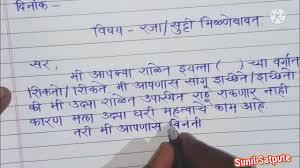 दिनांक -
विषय - रजा/सुट्टी मिळणेबाबत
सर,
मी आपल्या शाळेत इयत्ता ( ) च्या वर्गात
शिकतो/शिकते. मी आपणास सांगू इच्छितो/इच्छिते
की मी उद्या शाळेत उपस्थित राहू शकणार नाही
कारण मला उद्या घरी महत्वाचे काम आहे.
तरी मी आपणास विनंती
Sunil Satpute